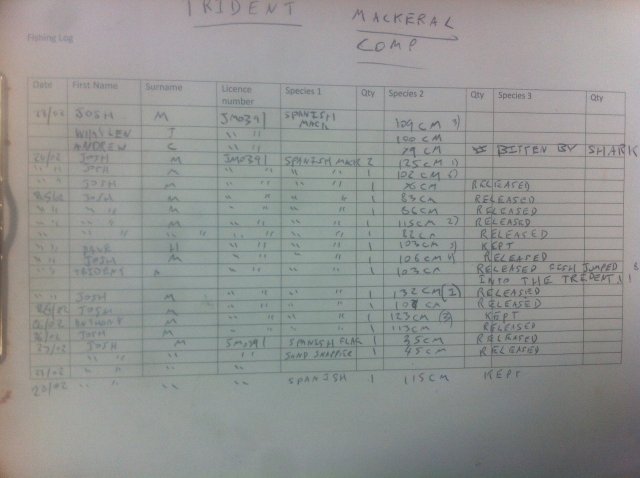 TRIDENT MACKERAL
COMP
Fishing Log
Date First Name Surname Licence number Species 1 Qty Species 2 Qty Species 3 Qty
JOSH M JM0391 SPANISH MACK 109 CM 3)
J " " 100 CM
ANDREW C " " 79 CM BITTEN BY SHARK
24/02 JOSH M JM0391 SPANISH MACK 2 125 CM 1)
" " JOSH M " " " " 102 CM 6)
" " JOSH M " " " " 1 CM RELEASED
25/02 JOSH M " " " " 1 83 CM RELEASED
" " " " M " " " " 1 86 CM RELEASED
" " " " M " " " " 1 115 CM 2) RELEASED
" " " " M " " " " 1 88 CM RELEASED
" " H " " " " 1 103 CM 5) KEPT
" " JOSH M " " " " 1 106 CM 4) RELEASED
" " TRIDENT " " " " 1 103 CM RELEASED FISH JUMPED
INTO THE TRIDENT!
" " JOSH M " " " " 1 132 CM (1) RELEASED
26/02 JOSH M " " " " 1 CM RELEASED
ANTHONY M " " " " 1 123 CM (3) KEPT
JOSH M " " " " 1 113 CM RELEASED
27/02 JOSH M SPANISH FLAG 1 35 CM RELEASED
" " " " " " SAND SNAPPER 1 45 CM RELEASED
" " " " " " SPANISH 1 115 CM KEPT